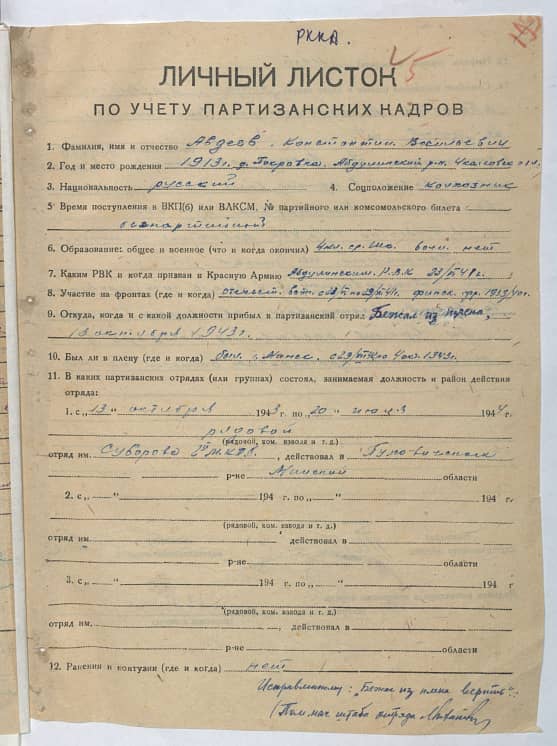 РККА.
5
ЛИЧНЫЙ ЛИСТОК
ПО УЧЕТУ ПАРТИЗАНСКИХ КАДРОВ
1. Фамилия, имя и отчество Авдеев Константин Васильевич
2. Год и место рождения 1913 г. д. Покровка, Абдулинский р-н, Чкаловск
3. Национальность русский 4. Соцположение колхозник
5 Время поступления в ВКП(б) или ВЛКСМ, № партийного или комсомольского билета
безпартийный
6. Образование: общее и военное (что и когда окончил) ср. воен. нет
7. Каким РВК и когда призван в Красную Армию Абдулинским Р.В.К 23/
8. Участие на фронтах (где и когда) отечест. финск. фр. 1939/40 г.
9. Откуда, и с какой должности прибыл в партизанский отряд Бежал из плена,
13 октября 1943 г.
10. Был ли в плену (где и когда) был г. Минск. с 29/ по 4 окт. 1943 г.
11. В каких партизанских отрядах (или группах) состоял, занимаемая должность и район действия
отряда:
1. с „13“ октября 1943 г. по „20“ июля 1944 г.
рядовой
(рядовой, ком. взвода и т. д.)
отряд им. Суворова 2й М.К.П.Б., действовал в Пуховическом
р-не Минской области
2. с „ “ 194 г. по „ “ 194 г.
(рядовой, ком. взвода и т. д.)
отряд им. , действовал в
р-не области
3. с „ “ 194 г. по „ “ 194 г.
(рядовой, ком. взвода и т. д.)
отряд им. , действовал в
р-не области
12. Ранения и контузии (где и когда) нет
Исправленому: „Бежал из плена верить“:
(Пом. нач штаба отряда